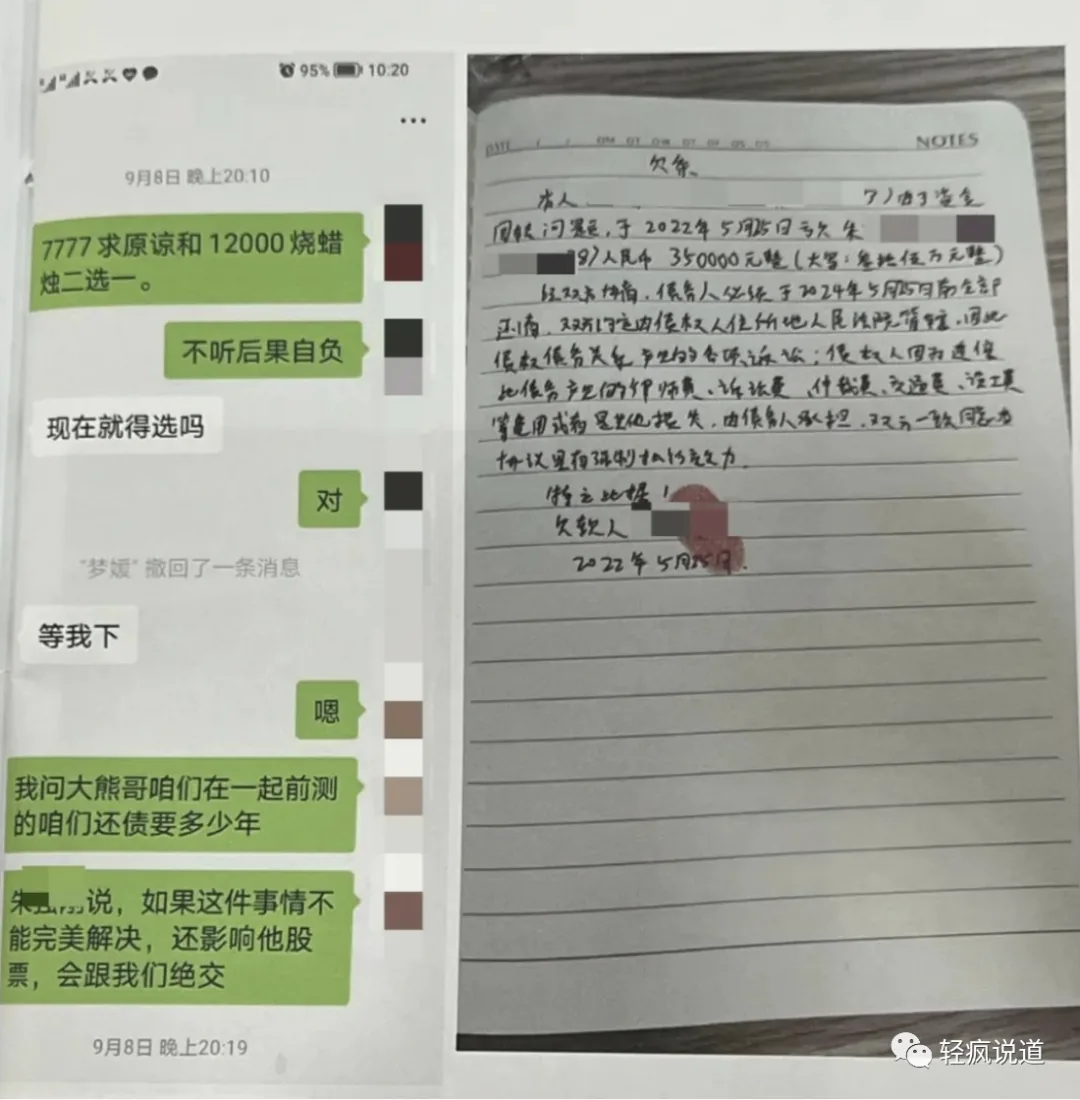 95% 10:20
9月8日 晚上20:10
7777求原谅和12000烧蜡
烛二选一。
不听后果自负
现在就得选吗
对
"梦媛"撤回了一条消息
等我下
嗯
我问大熊哥咱们在一起前测
的咱们还债要多少年
朱 说，如果这件事情不
能完美解决，还影响他股
票，会跟我们绝交
9月8日 晚上20:19
DATE NOTES
欠条
本人 )由于资金
回收问题，于2022年5月25日亏欠朱
8)人民币350000元整(大写：叁拾伍万元整)
经双方协商，债务人必须于2024年5月25日前全部
还清，双方约定由债权人住所地人民法院管辖，因此
债权债务关系产生的各项诉讼；债权人因为追偿
此债务产生的律师费、诉讼费、仲裁费、交通费、误工费
等费用或者是其他损失，由债务人承担，双方一致同意
协议具有强制执行效力。
特立此据！
欠款人
2022年5月25日.
轻疯说道